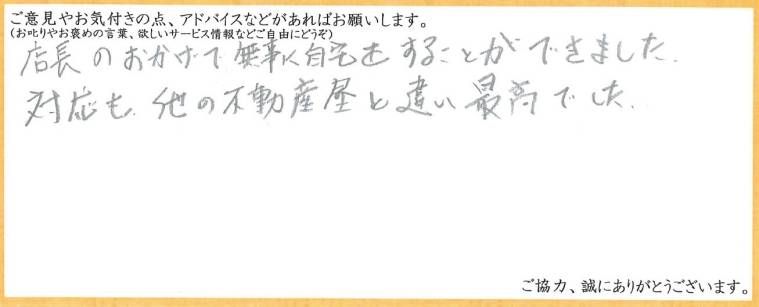 ご意見やお気付きの点、アドバイスなどがあればお願いします。
(お叱りやお褒めの言葉、欲しいサービス情報などご自由にどうぞ)
店長のおかげで無事に自宅をすることができました.
対応も、他の不動産屋と違い最高でした.
ご協力、誠にありがとうございます。